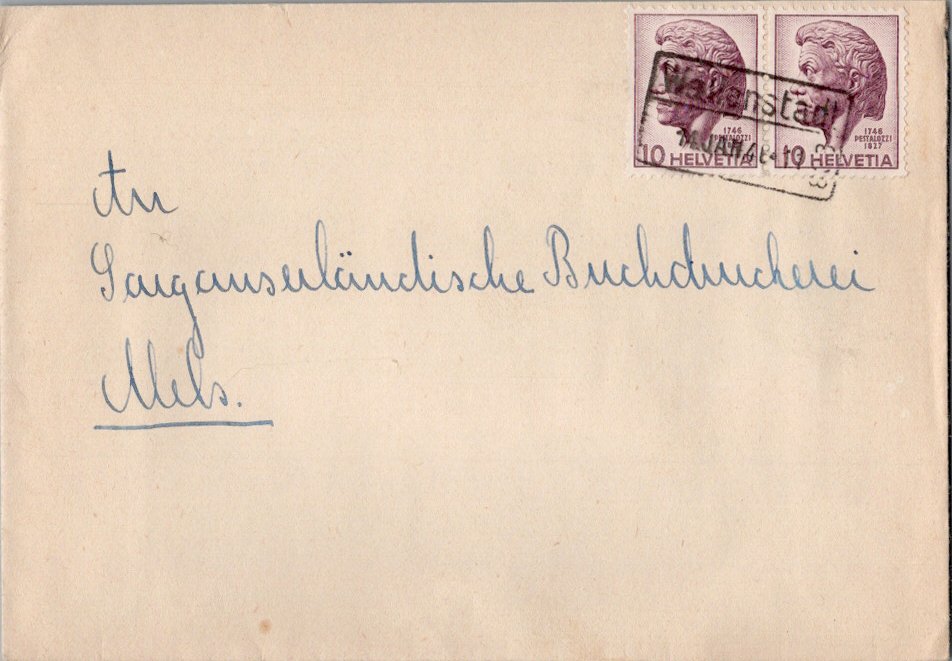 1746
PESTALOZZI
10 HELVETIA
1746
PESTALOZZI
1827
10 HELVETIA
Wallenstadt
An
Sarganserländische Buchdruckerei
Mels.